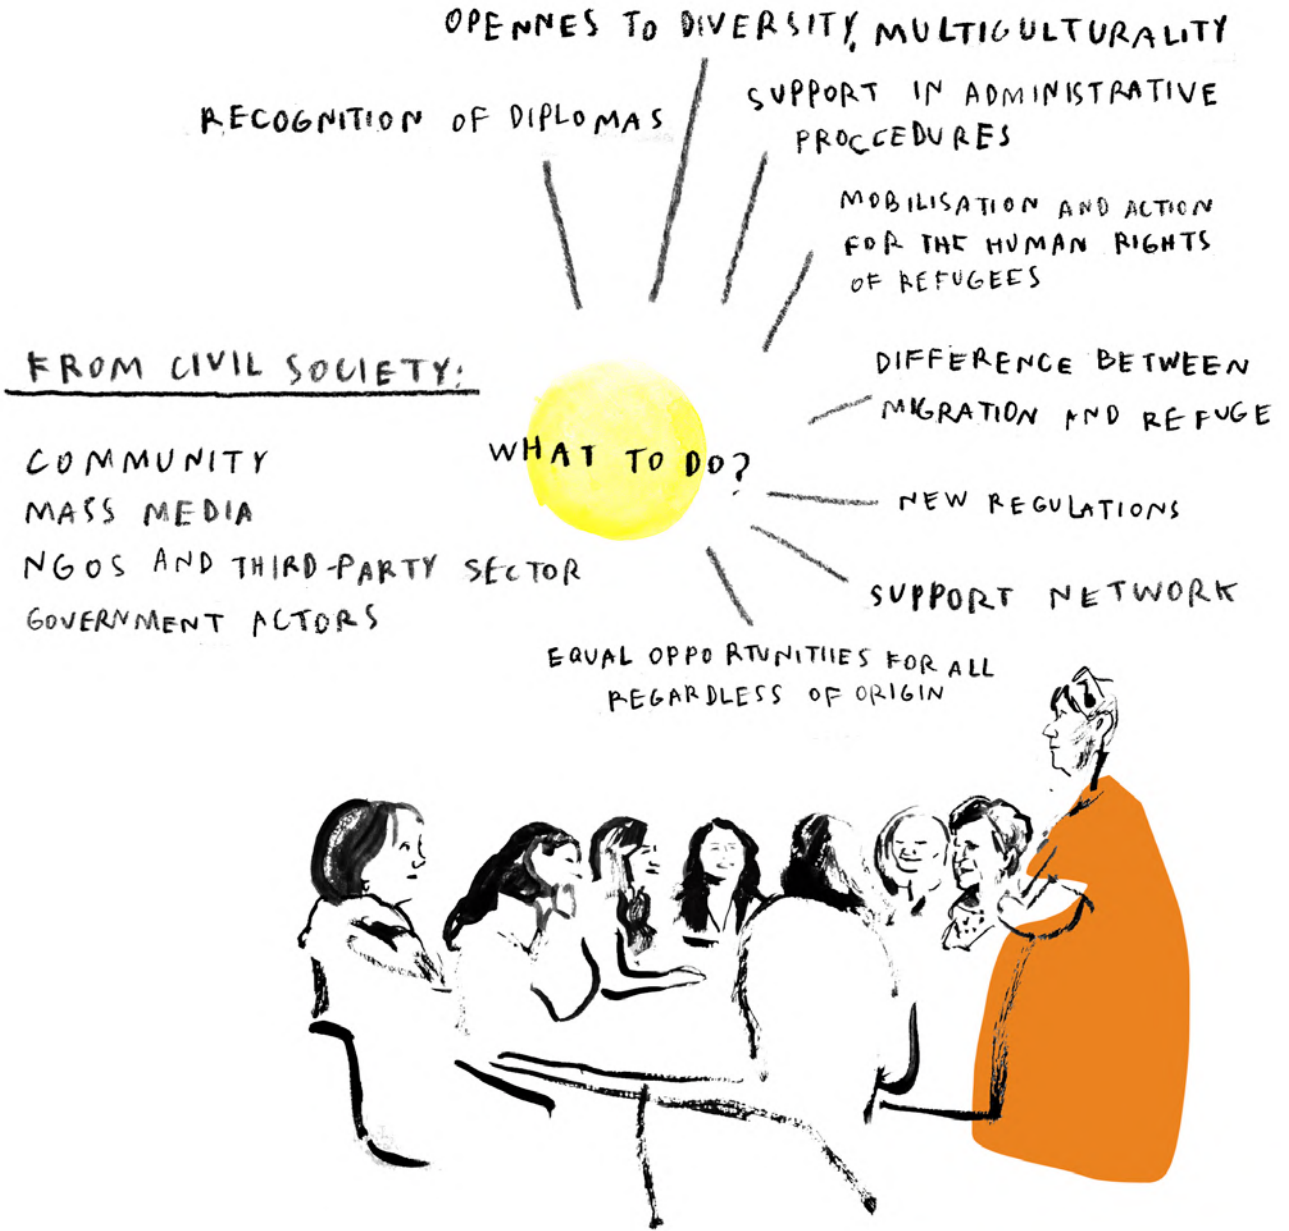 OPENNES TO DIVERSITY, MULTICULTURALITY
RECOGNITION OF DIPLOMAS
SUPPORT IN ADMINISTRATIVE
PROCCEDURES
MOBILISATION AND ACTION
FOR THE HUMAN RIGHTS
OF REFUGEES
DIFFERENCE BETWEEN
MIGRATION AND REFUGE
NEW REGULATIONS
SUPPORT NETWORK
EQUAL OPPORTUNITIIES FOR ALL
REGARDLESS OF ORIGIN
WHAT TO DO?
FROM CIVIL SOCIETY:
COMMUNITY
MASS MEDIA
NGOS AND THIRD-PARTY SECTOR
GOVERNMENT ACTORS